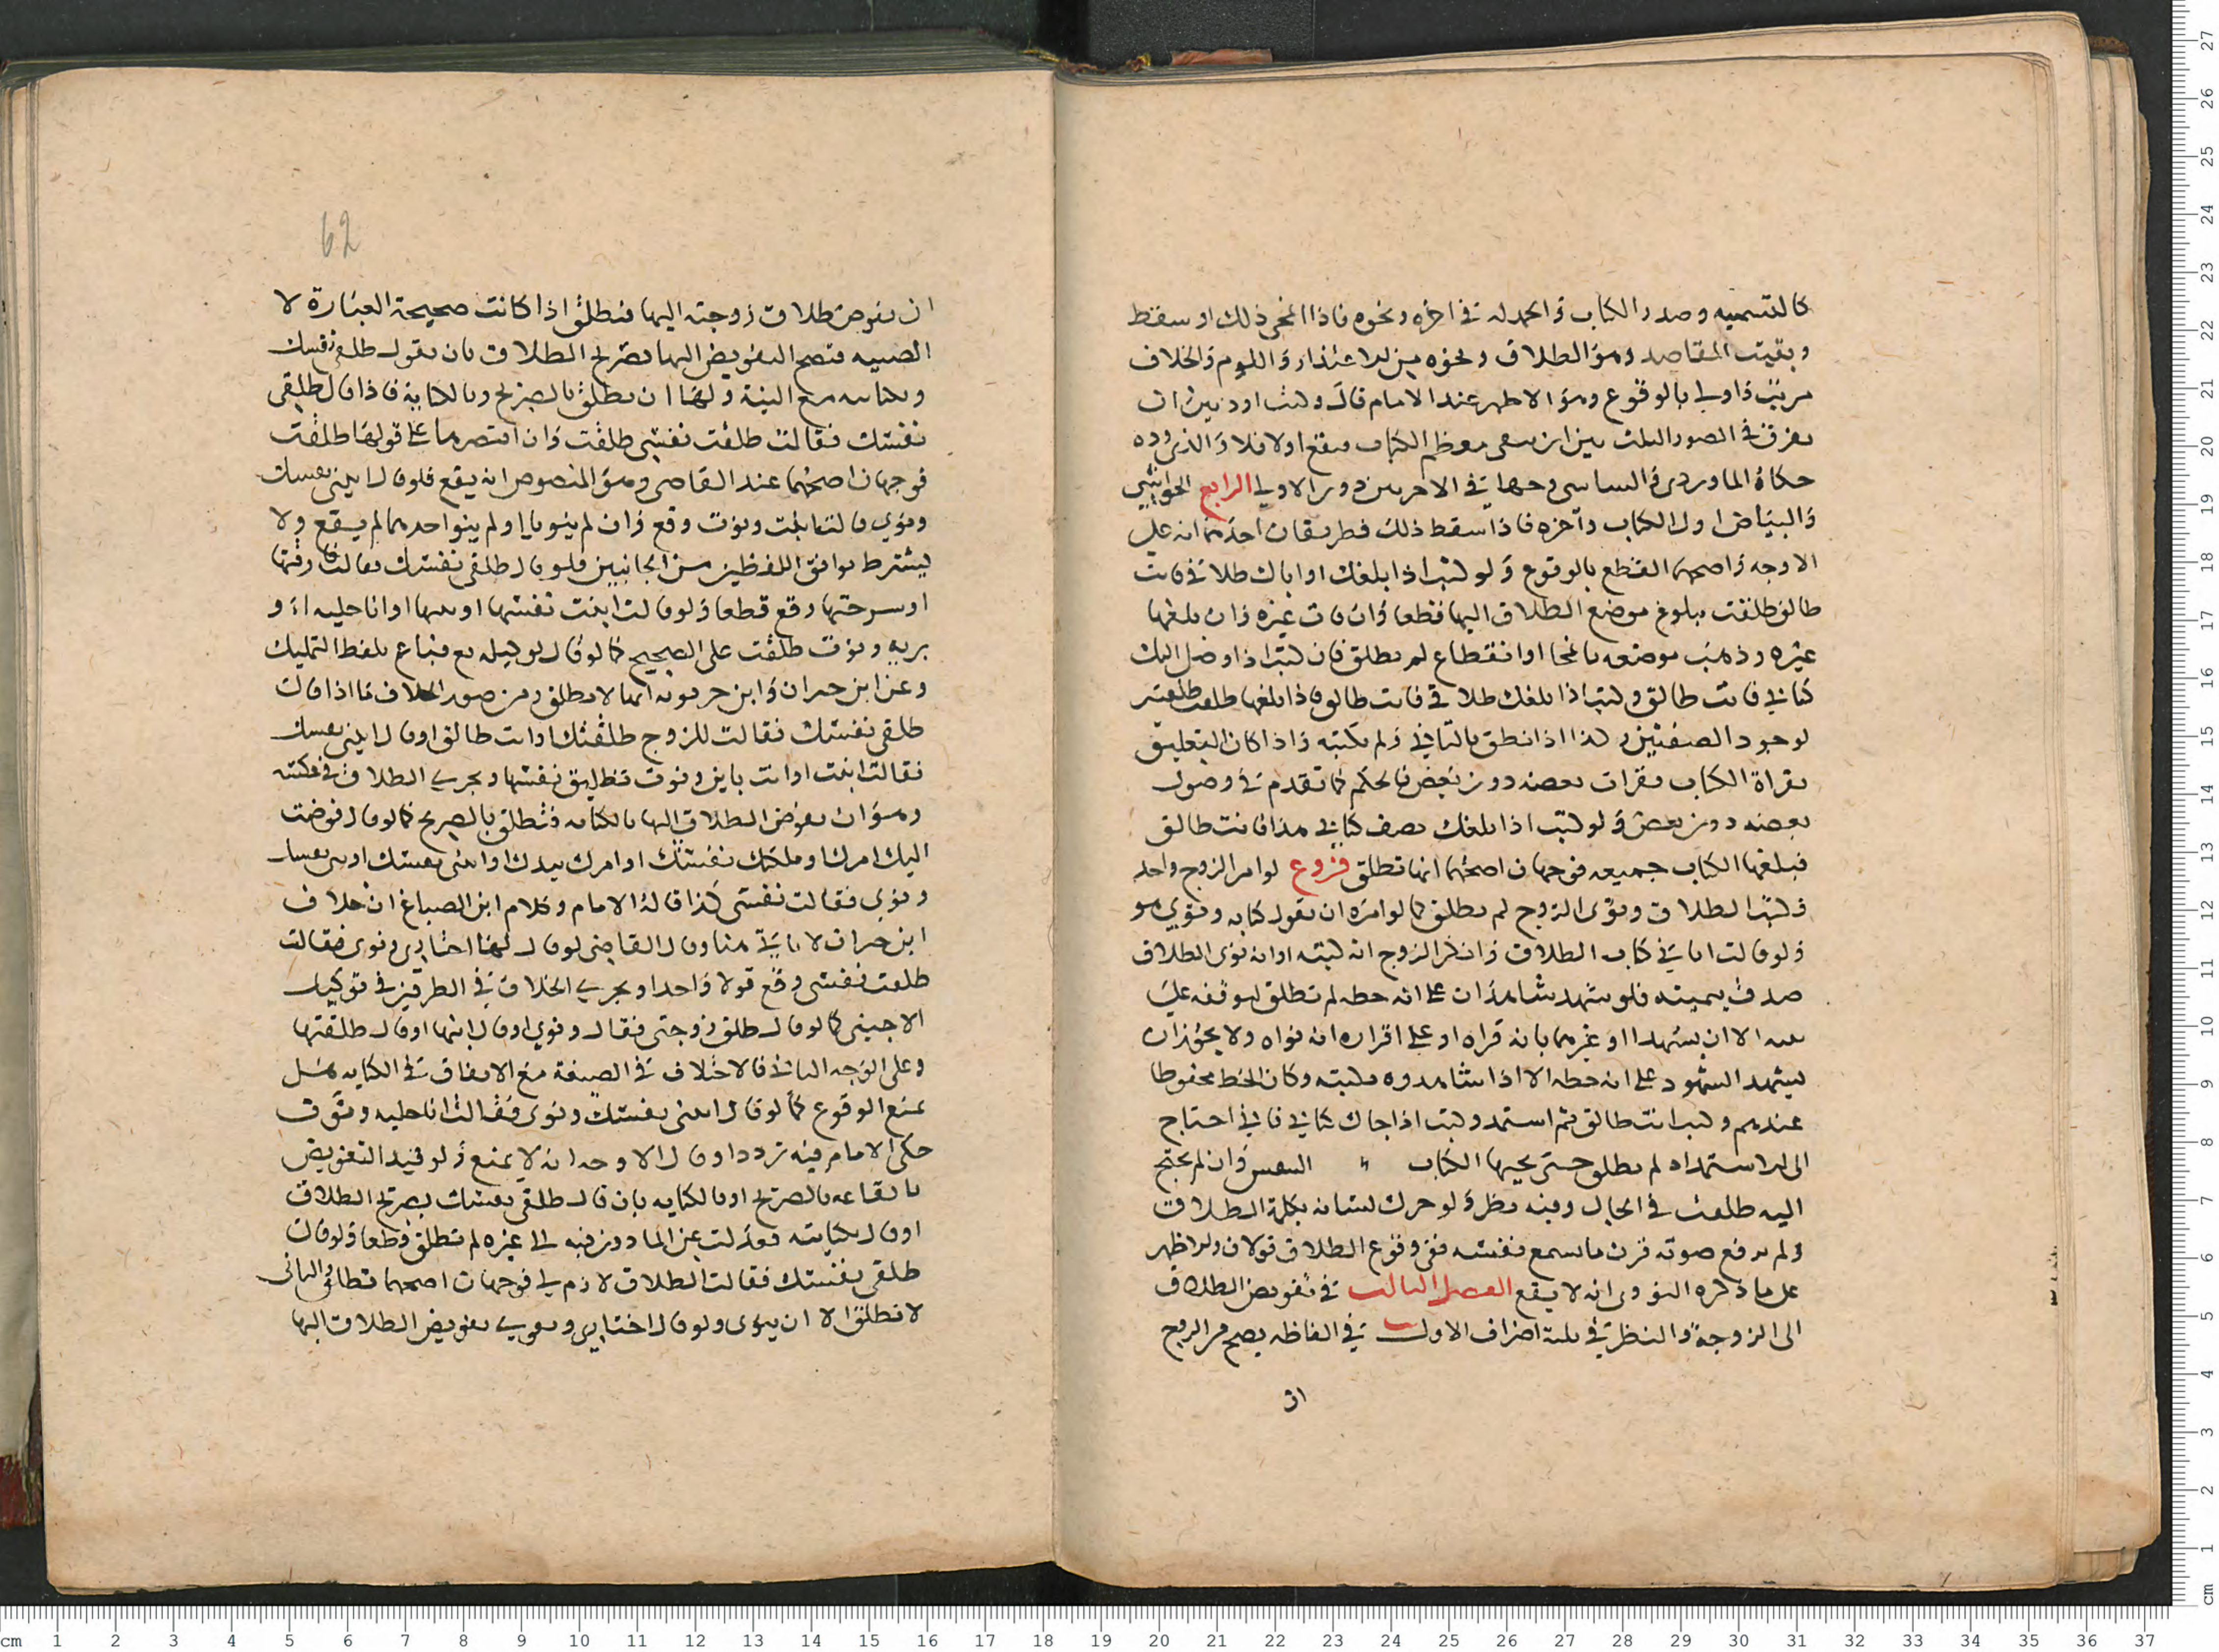 كالتسميه وصدر الكتاب والحمدله في اخره ونحوه فاذا انمحى ذلك او سقط
وبقيت المقاصد وهو الطلاق ونحوه من الاعتذار واللوم فالخلاف
مرتب واولى بالوقوع وهو الاظهر عند الامام قال ولست اود بين ان
يفرق في الصور الثلث بين ان يبقى معظم الكتاب فيقع اولا فلا والذي رده
حكاه الماوردي في الاخر دون الاولى الرابع الحواشي
والبياض اول الكتاب واخره فاذا سقط ذلك فطريقان احدهما انه على
الاوجه واصحهما القطع بالوقوع ولو كتب اذا بلغك او اتاك طلاقي فانت
طالق طلقت ببلوغ موضع الطلاق اليها قطعا وان فات غيره وان بلغها
غيره وذهب موضعه بانمحا او انقطاع لم تطلق فان كتب اذا وصل اليك
كتابي فانت طالق وكتب اذا بلغك طلاقي فانت طالق فاذا بلغها طلقت طلقتين
لوجود الصفتين وكذا اذا نطق بالثاني ولم يكتبه واذا كان التعليق
بقراة الكتاب فقرات بعضه دون بعض فالحكم كما تقدم في وصول
بعضه دون بعض ولو كتب اذا بلغك نصف كتابي هذا فانت طالق
فبلغها الكتاب جميعه فوجهان اصحهما انها تطلق فروع لو امر الزوج واحدا
فكتب الطلاق ونوى الزوج لم تطلق كما لو امره ان يقول كنايه ونوى هو
ولو قالت اتاني كتاب الطلاق وانكر الزوج انه كتبه او انه نوى الطلاق
صدق بيمينه فلو شهد شاهدان على انه خطه لم تطلق لتوقفه على
نيته الا ان يشهدا او غيرهما بانه قراه او على اقراره انه نواه ولا يجوز ان
يشهد الشهود على انه خطه الا اذا شاهدوه يكتبه وكان الخط محفوظا
عندهم وكتب انت طالق ثم استمد وكتب اذا جاك كتابي فان احتاج
الى الاستمداد لم تطلق حتى يجيها الكتاب وان لم يحتج
اليه طلقت في الحال وفيه نظر ولو حرك لسانه بكلمة الطلاق
ولم يرفع صوته قدرا ما يسمع نفسه ففي وقوع الطلاق قولان والاظهر
على ما ذكره النووي انه لا يقع الفصل الثالث في تفويض الطلاق
الى الزوجة والنظر في ثلثة اطراف الاول في الفاظه يصح من الزوج
ان
62
ان يفوض طلاق زوجته اليها فتطلق اذا كانت صحيحة العبارة لا
الصبيه فتصح التفويض اليها بصريح الطلاق بان يقول طلقي نفسك
وبكنايته مع النية ولها ان تطلق بالصريح وبالكناية فاذا قال طلقي
نفسك فقالت طلقت نفسي طلقت وان اقتصرت على قولها طلقت
فوجهان اصحهما عند القاضي وهو المنصوص انه يقع فلو قال ابيني نفسك
ونوى فقالت ابنت ونوت وقع وان لم ينويا او لم ينو احدهما لم يقع ولا
يشترط توافق اللفظين من الجانبين فلو قال طلقي نفسك فقالت فارقتها
او سرحتها وقع قطعا ولو قالت ابنت نفسها او بتتها او انا خليه او
بريه ونوت طلقت على الصحيح كما لو قال لوكيله بع فباع بلفظ التمليك
وعن ابن خيران وابن حربويه انها لا تطلق ومن صور الخلاف ما اذا قال
طلقي نفسك فقالت للزوج طلقتك او انت طالق او قال ابيني نفسك
فقالت ابنت او انت باين ونوت تطليق نفسها ويجري الطلاق في عكسه
وهو ان يفوض الطلاق اليها بالكنايه فتطلق بالصريح كما لو قال فوضت
اليك امرك او ملكتك نفسك او امرك بيدك او ابني نفسك او نفسك
ونوى فقالت نفسي كذا قاله الامام وكلام ابن الصباغ ان خلاف
ابن خيران لا ياتي هنا وقال القاضي لو قال لها اختاري ونوى فقالت
طلقت نفسي وقع قولا واحدا ويجري الخلاف في الطرفين في توكيل
الاجنبي كما لو قال طلق زوجتي فقال ونوى او قال ابنها او قال طلقتها
وعلى الوجه الثاني فالاختلاف في الصيغة مع الاتفاق في الكنايه هل
يمنع الوقوع كما لو قال ابيني نفسك ونوى فقالت انا خليه ونوت
حكى الامام فيه تردد وقال الاوجه انه لا يمنع ولو قيد التفويض
بالقاعه بالصريح او بالكنايه بان قال طلقي نفسك بصريح الطلاق
او قال بكنايته فعدلت عن الماذون فيه الى غيره لم تطلق قطعا ولو قال
طلقي نفسك فقالت الطلاق لازم لي فوجهان اصحهما تطلق والثاني
لا تطلق الا ان ينوى ولو قال اختاري ونوى تفويض الطلاق اليها